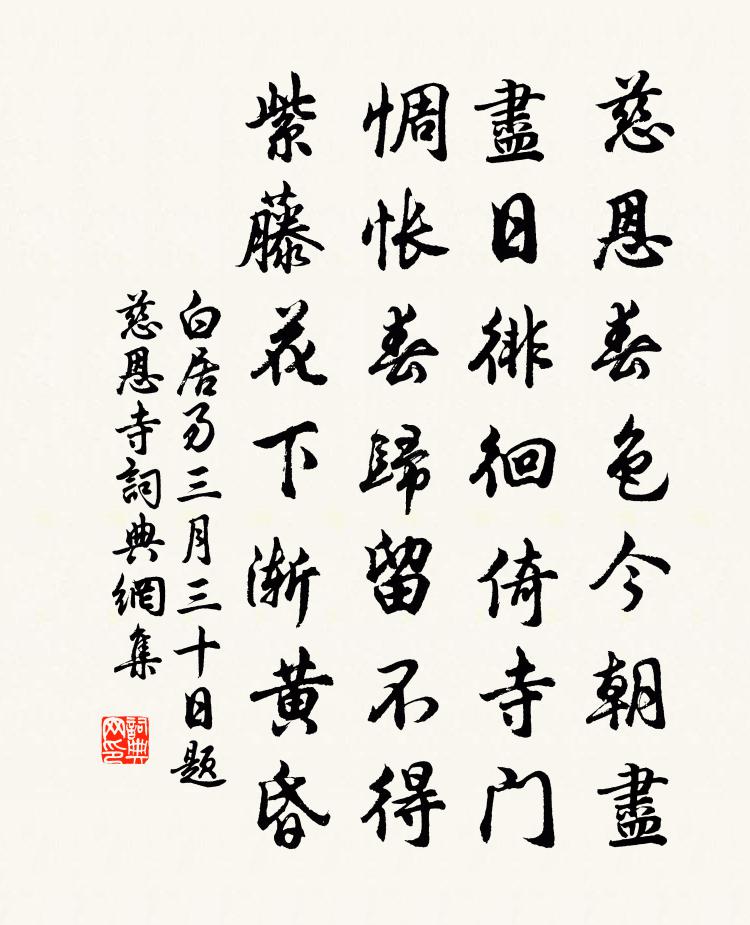 慈恩春色今朝盡
盡日徘徊倚寺门
惆怅春歸留不得
紫藤花下渐黄昏
白居易三月三十日题
慈恩寺詞典網集
詞典网印